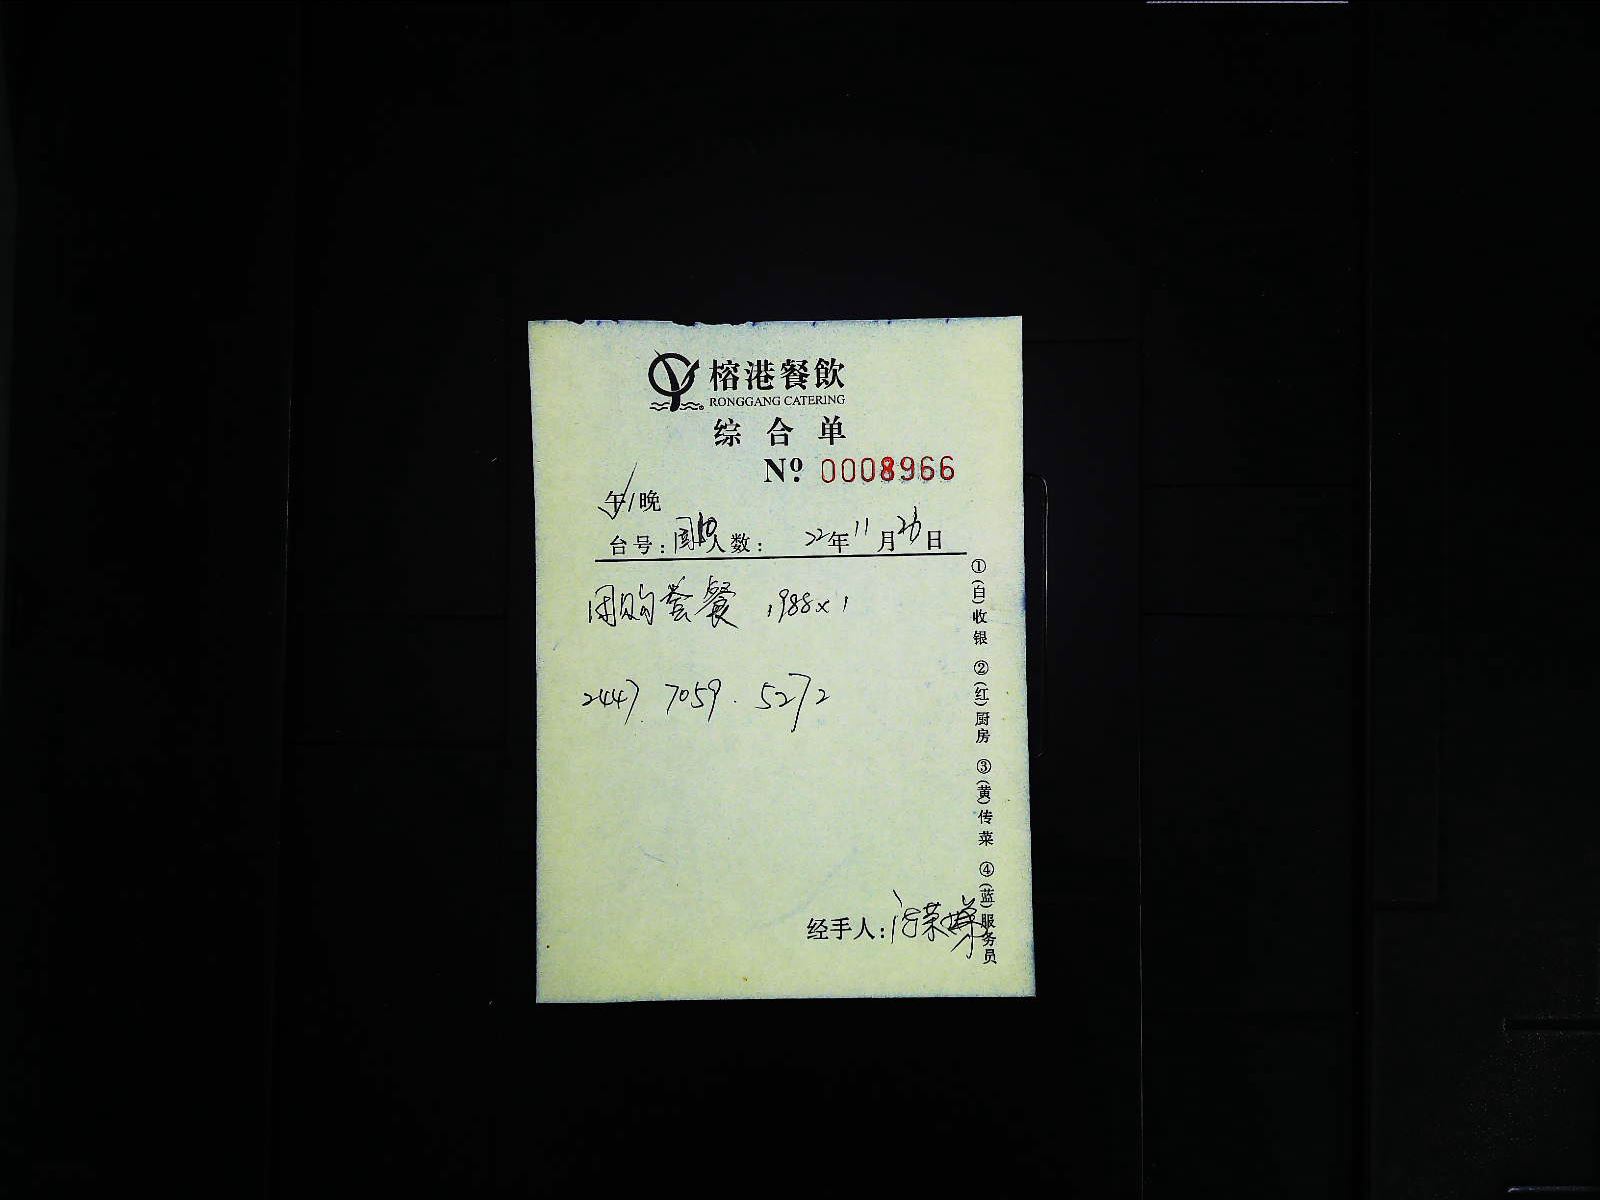 榕港餐飲
RONGGANG CATERING
综合单
Nº. 0008966
午/晚
台号: 人数: 22年11月26日
团购套餐 1988x1
2447 7059. 5272
经手人:
①(白)收银 ②(红)厨房 ③(黄)传菜 ④(蓝)服务员